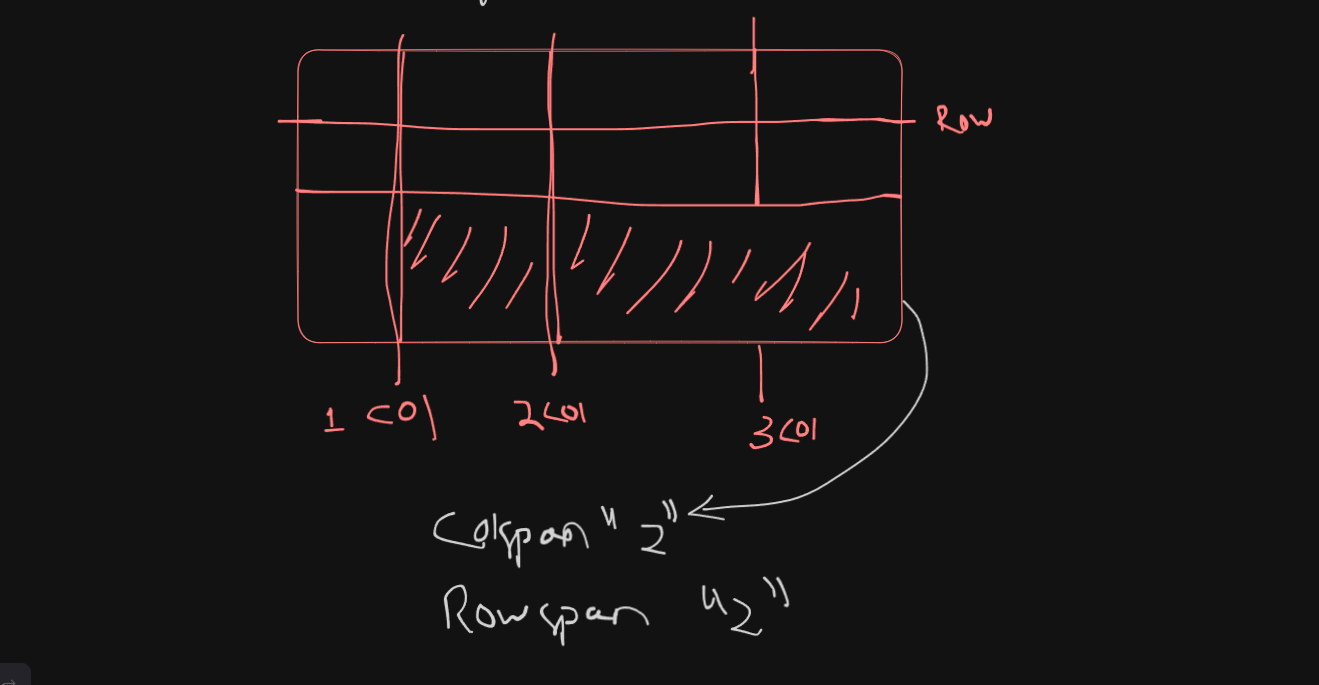 Row
1 Col
2 Col
3 Col
Colspan "2"
Rowspan "2"